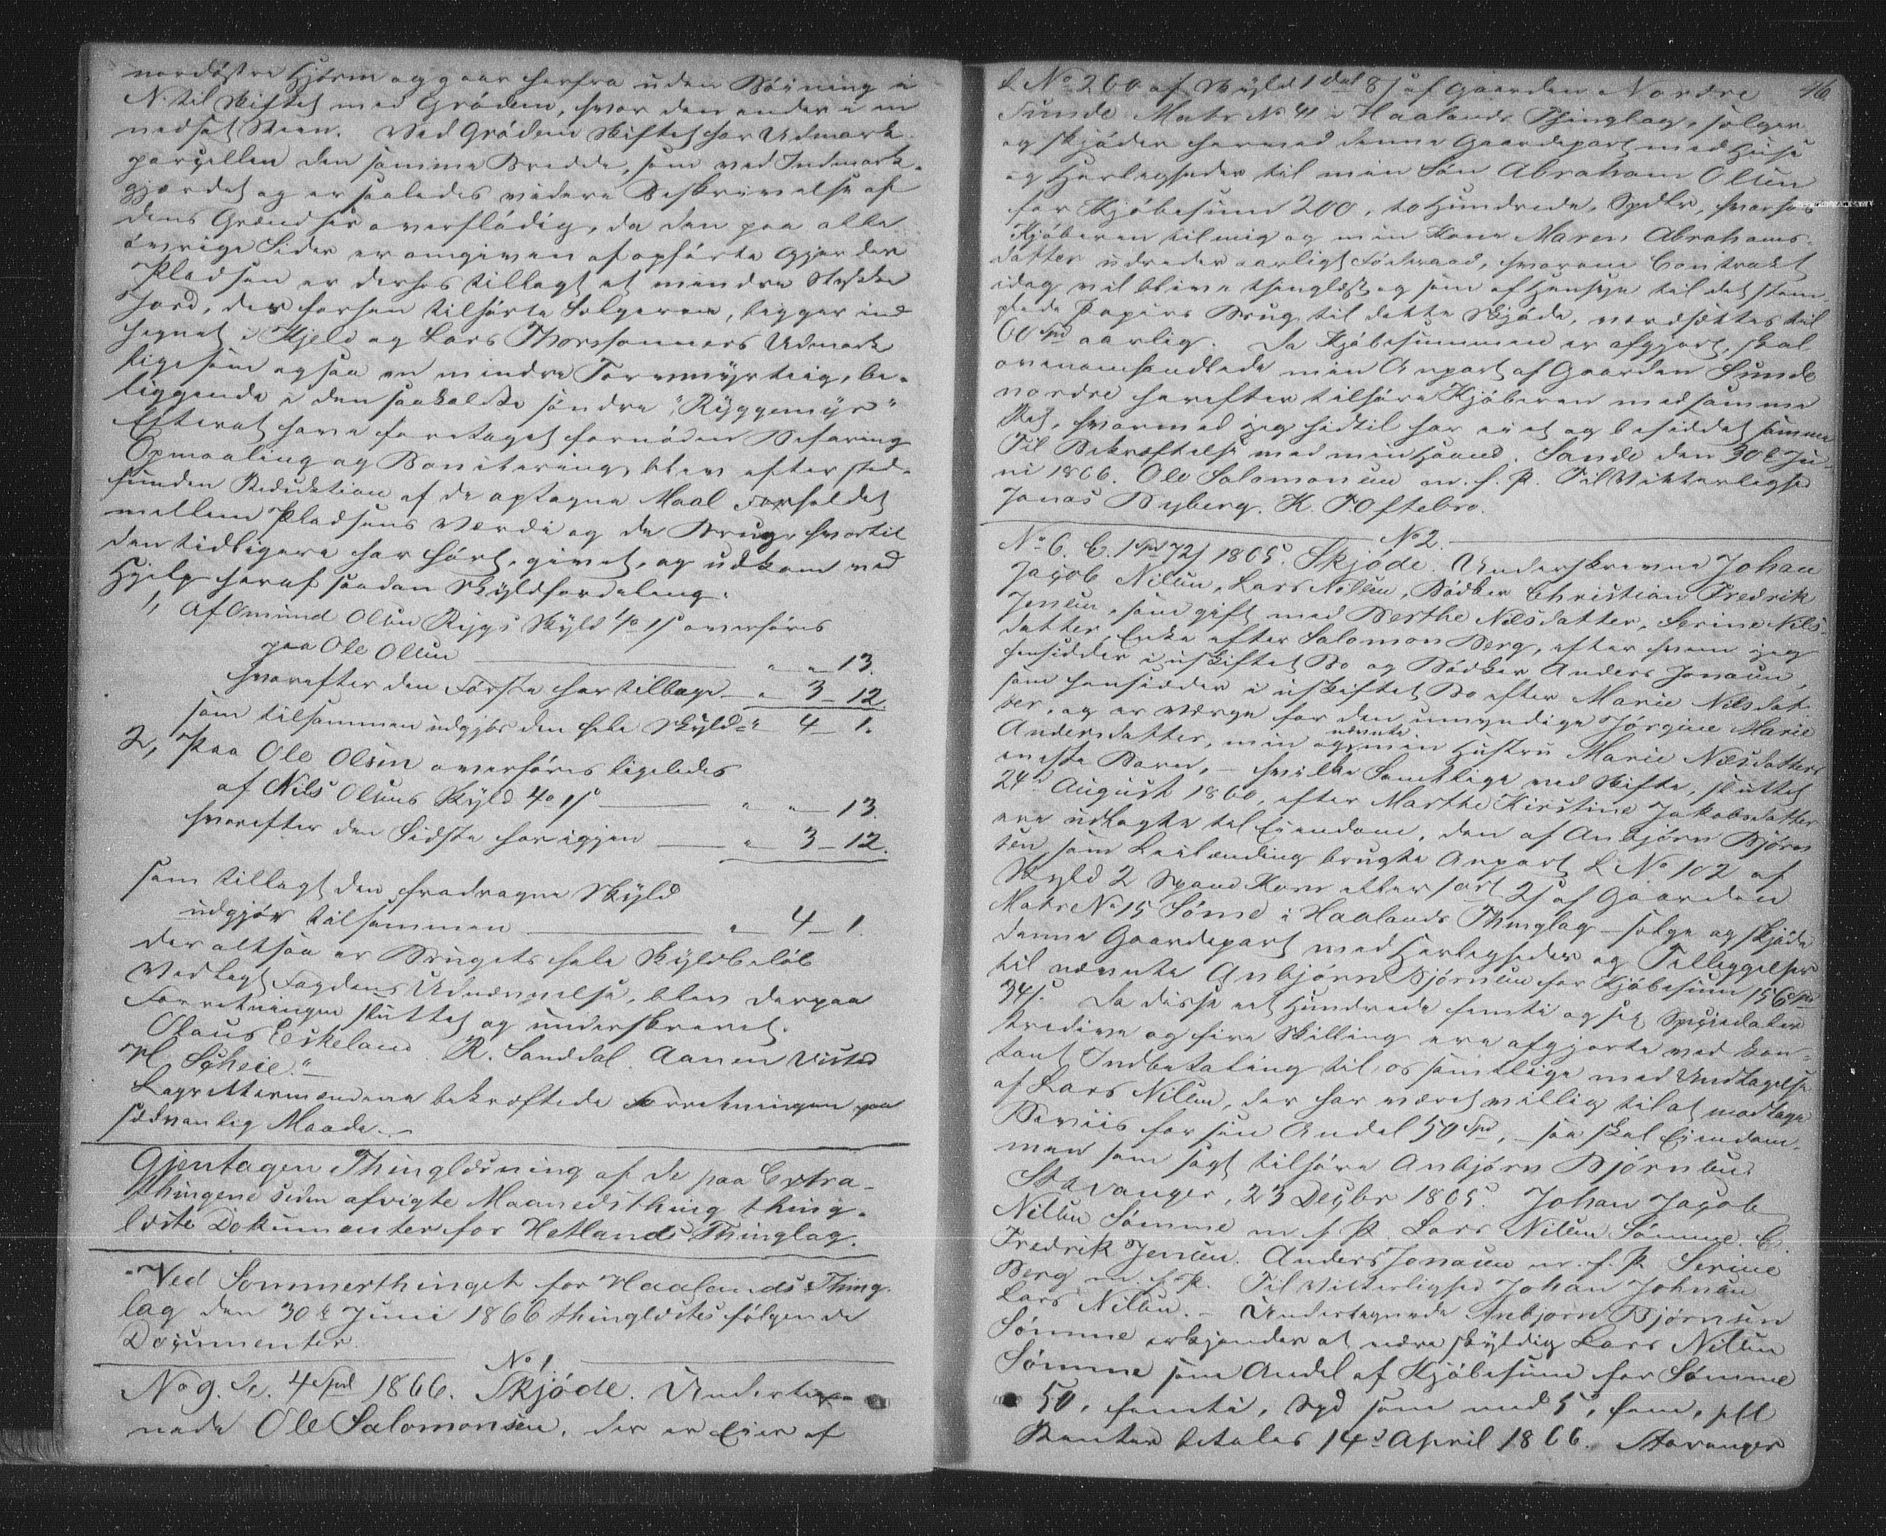 nordöstre Hjörne og gaar herfra uden Böining i
N. til Skiftet med Gröden, hvor den ender i en
nedsat Steen. Ved Gröden Skiftet har Udmark
parcellen den samme Bredde, som ved Indmark-
gjærdet og er saaledes videre Beskrivelse af
dens Grændser overflödig, da den paa alle
övrige Sider er omgiven af opförte Gjerder
Pladsen er derhos tillagt et mindre Stykke
Jord, der forhen tilhörte Sælgeren, ligger ind
hegnet i Kjeld og Lars Thorssönners Udmark
ligesom ogsaa en mindre Torvmyrteig, be-
liggende i den saakaldte söndre "Ryggemyr"
Efterat have foretaget fornöden Befaring
Opmaaling og Bonitering, blev efter sted-
funden Reduktion af de optagne Maal Forholdet
mellem Pladsens Værdi og de Brug, hvortil
den tidligere har hört, givet, og udkom ved
Hjelp heraf saadan Skyldfordeling:
1, Af Omund Olsen Rygs Skyld 4 o 1 s overföres
paa Ole Olsen " " 13.
hvorefter den Förste har tilbage " 3 - 12
som tilsammen udgjör den hele Skyld " 4 - 1.
2, Paa Ole Olsen overföres ligeledes
af Nils Olsens Skyld 4 o 1 s " " 13.
hvorefter den Sidste har igjen " 3 - 12.
som tillagt den fradragne Skyld
udgjör tilsammen " 4 - 1.
der altsaa er Brugets hele Skyldbelöb
Vedlagt Fogdens Udnævnelse, blev derpaa
Forretningen sluttet og underskrevet.
Olaus Eskeland. R. Sanddal. Aanen Visted
H. Scheie."
Lagrettemændene bekræftede Forretningen paa
sædvanlig Maade.
Gjentagen Thinglæsning af de paa Extra-
thingene siden afvigte Maanedsthing thing-
læste Dokumenter for Hetlands Thinglag.
Ved Sommerthinget for Haalands Thing
lag den 30te Juni 1866 thinglæstes fölgende
Documenter.
No 1
No 9. C. 4 Spd 1866. Skjöde. Underteg-
nede Ole Salomonsen, der er Eier af
46
L No 260 af Skyld 1 dal 8 s af Gaarden Nordre
Sunde Matr No 41 i Haalands Thinglag, sælger
og skjöder hermed denne Gaardepart med Huse
og Herligheder til min Sön Abraham Olsen
for Kjöbesum 200, to Hundrede, Spdlr, hvorhos
Kjöberen til mig og min Kone Maren Abrahams-
datter udreder aarligt Föderaad, hvorom Contrakt
idag vil blive thinglæst og som af Hensyn til det stem
plede Papirs Brug til dette Skjöde, værdsættes til
60 Spd aarlig. Da Kjöbesummen er afgjort, skal
ovenomhandlede min Anpart af Gaarden Sunde
nordre herefter tilhöre Kjöberen med samme
Ret, hvormed jeg hidtil har eiet og besiddet samme
Til Bekræftelse med min Haand. Sande den 30te Ju-
ni 1866. Ole Salomonsen m. f. P. Til Vitterlighed
Jonas Byberg. K. T. Oftebro.
No 2.
No 6. C. 1 Spd 72 s 1865. Skjöde. Underskrevne Johan
Jacob Nilsen, Lars Nilsen, Bödker Christian Fredrik
Jensen, som gift med Berthe Nilsdatter, Serine Nils-
datter, Enke efter Salomon Berg, efter hvem jeg
hensidder i uskiftet Bo og Bödker Anders Jonasen,
som hensidder i uskiftet Bo efter Marie Nilsdat
ter, og er Værge for den umyndige Jörgine Marie
Andersdatter, min og nævnte min Hustru Marie Nilsdatters
eneste Barn, - hvilke Samtlige ved Skifte, sluttet
24de August 1860, efter Marthe Kirstine Jakobsdatter
ere udlagte til Eiendom, den af Anbjörn Björn
sen som Leilænding brugte Anpart L No 102 af
Skyld 2 Spand Korn eller 1 ort 2 s af Gaarden
Matr No 15 Sömme i Haalands Thinglag - sælge og skjöde
denne Gaardepart med Herligheder og Tilleggelser
til nævnte Anbjörn Björnsen for Kjöbesum 156 Spd
34 s. Da disse eet Hundrede femti og sex Speciedaler
tredive og fire Skilling ere afgjorte ved kon-
tant Indbetaling til os samtlige med Undtagelse
af Lars Nilsen, der har været villig til at modtage
Beviis for sin Andel 50 Spd, - saa skal Eiendom-
men som sagt tilhöre Anbjörn Björnsen.
Stavanger, 23 Decbr 1865. Johan Jacob
Nilsen Sömme m. f. P. Lars Nilsen Sömme. C.
Fredrik Jensen. Anders Jonasen m. f. P. Serine
Berg m. f. P. Til Vitterlighed Johan Johnsen
Lars Nilsen. - Undertegnede Anbjörn Björnsen
Sömme erkjender at være skyldig Lars Nilsen
Sömme som Andel af Kjöbesum for Sömme
50, femti, Spd som med 5, fem, pCt
Renter betales 14de April 1866. Stavanger